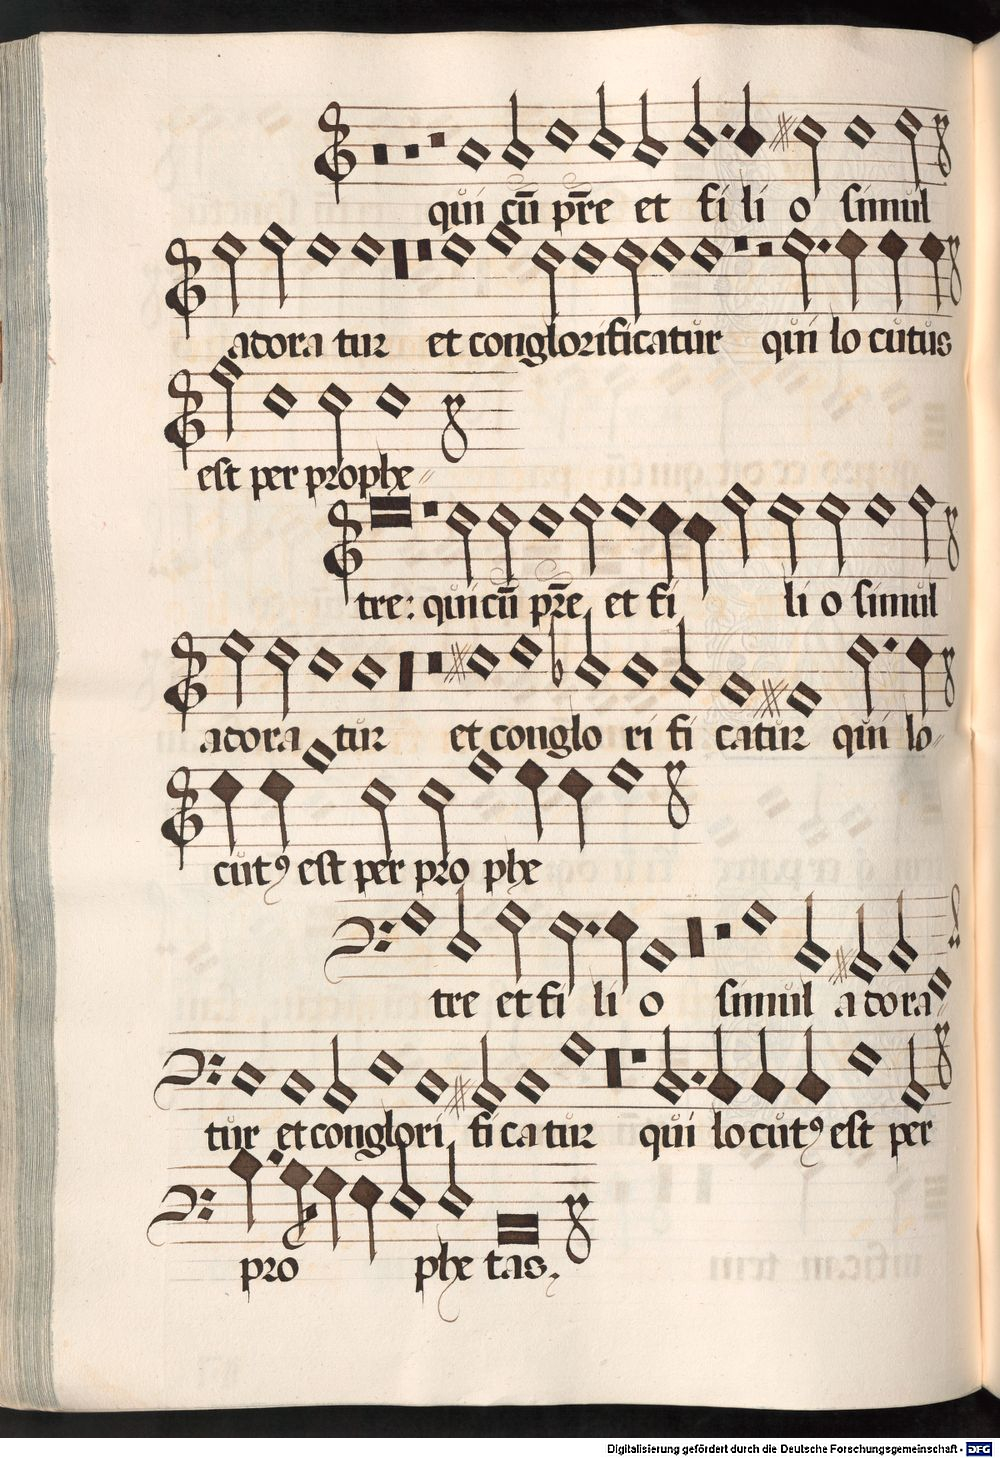 qui cũ pr̃e et fi li o simul
adora tur et conglorificatur qui lo cutus
est per prophe
tre: qui cũ pr̃e et fi li o simul
adora tur et conglo ri fi catur qui lo
cutꝰ est per pro phe
tre et fi li o simul a dora
tur et conglori fi ca tur qui locutꝰ est per
pro phe tas.
Digitalisierung gefördert durch die Deutsche Forschungsgemeinschaft - DFG